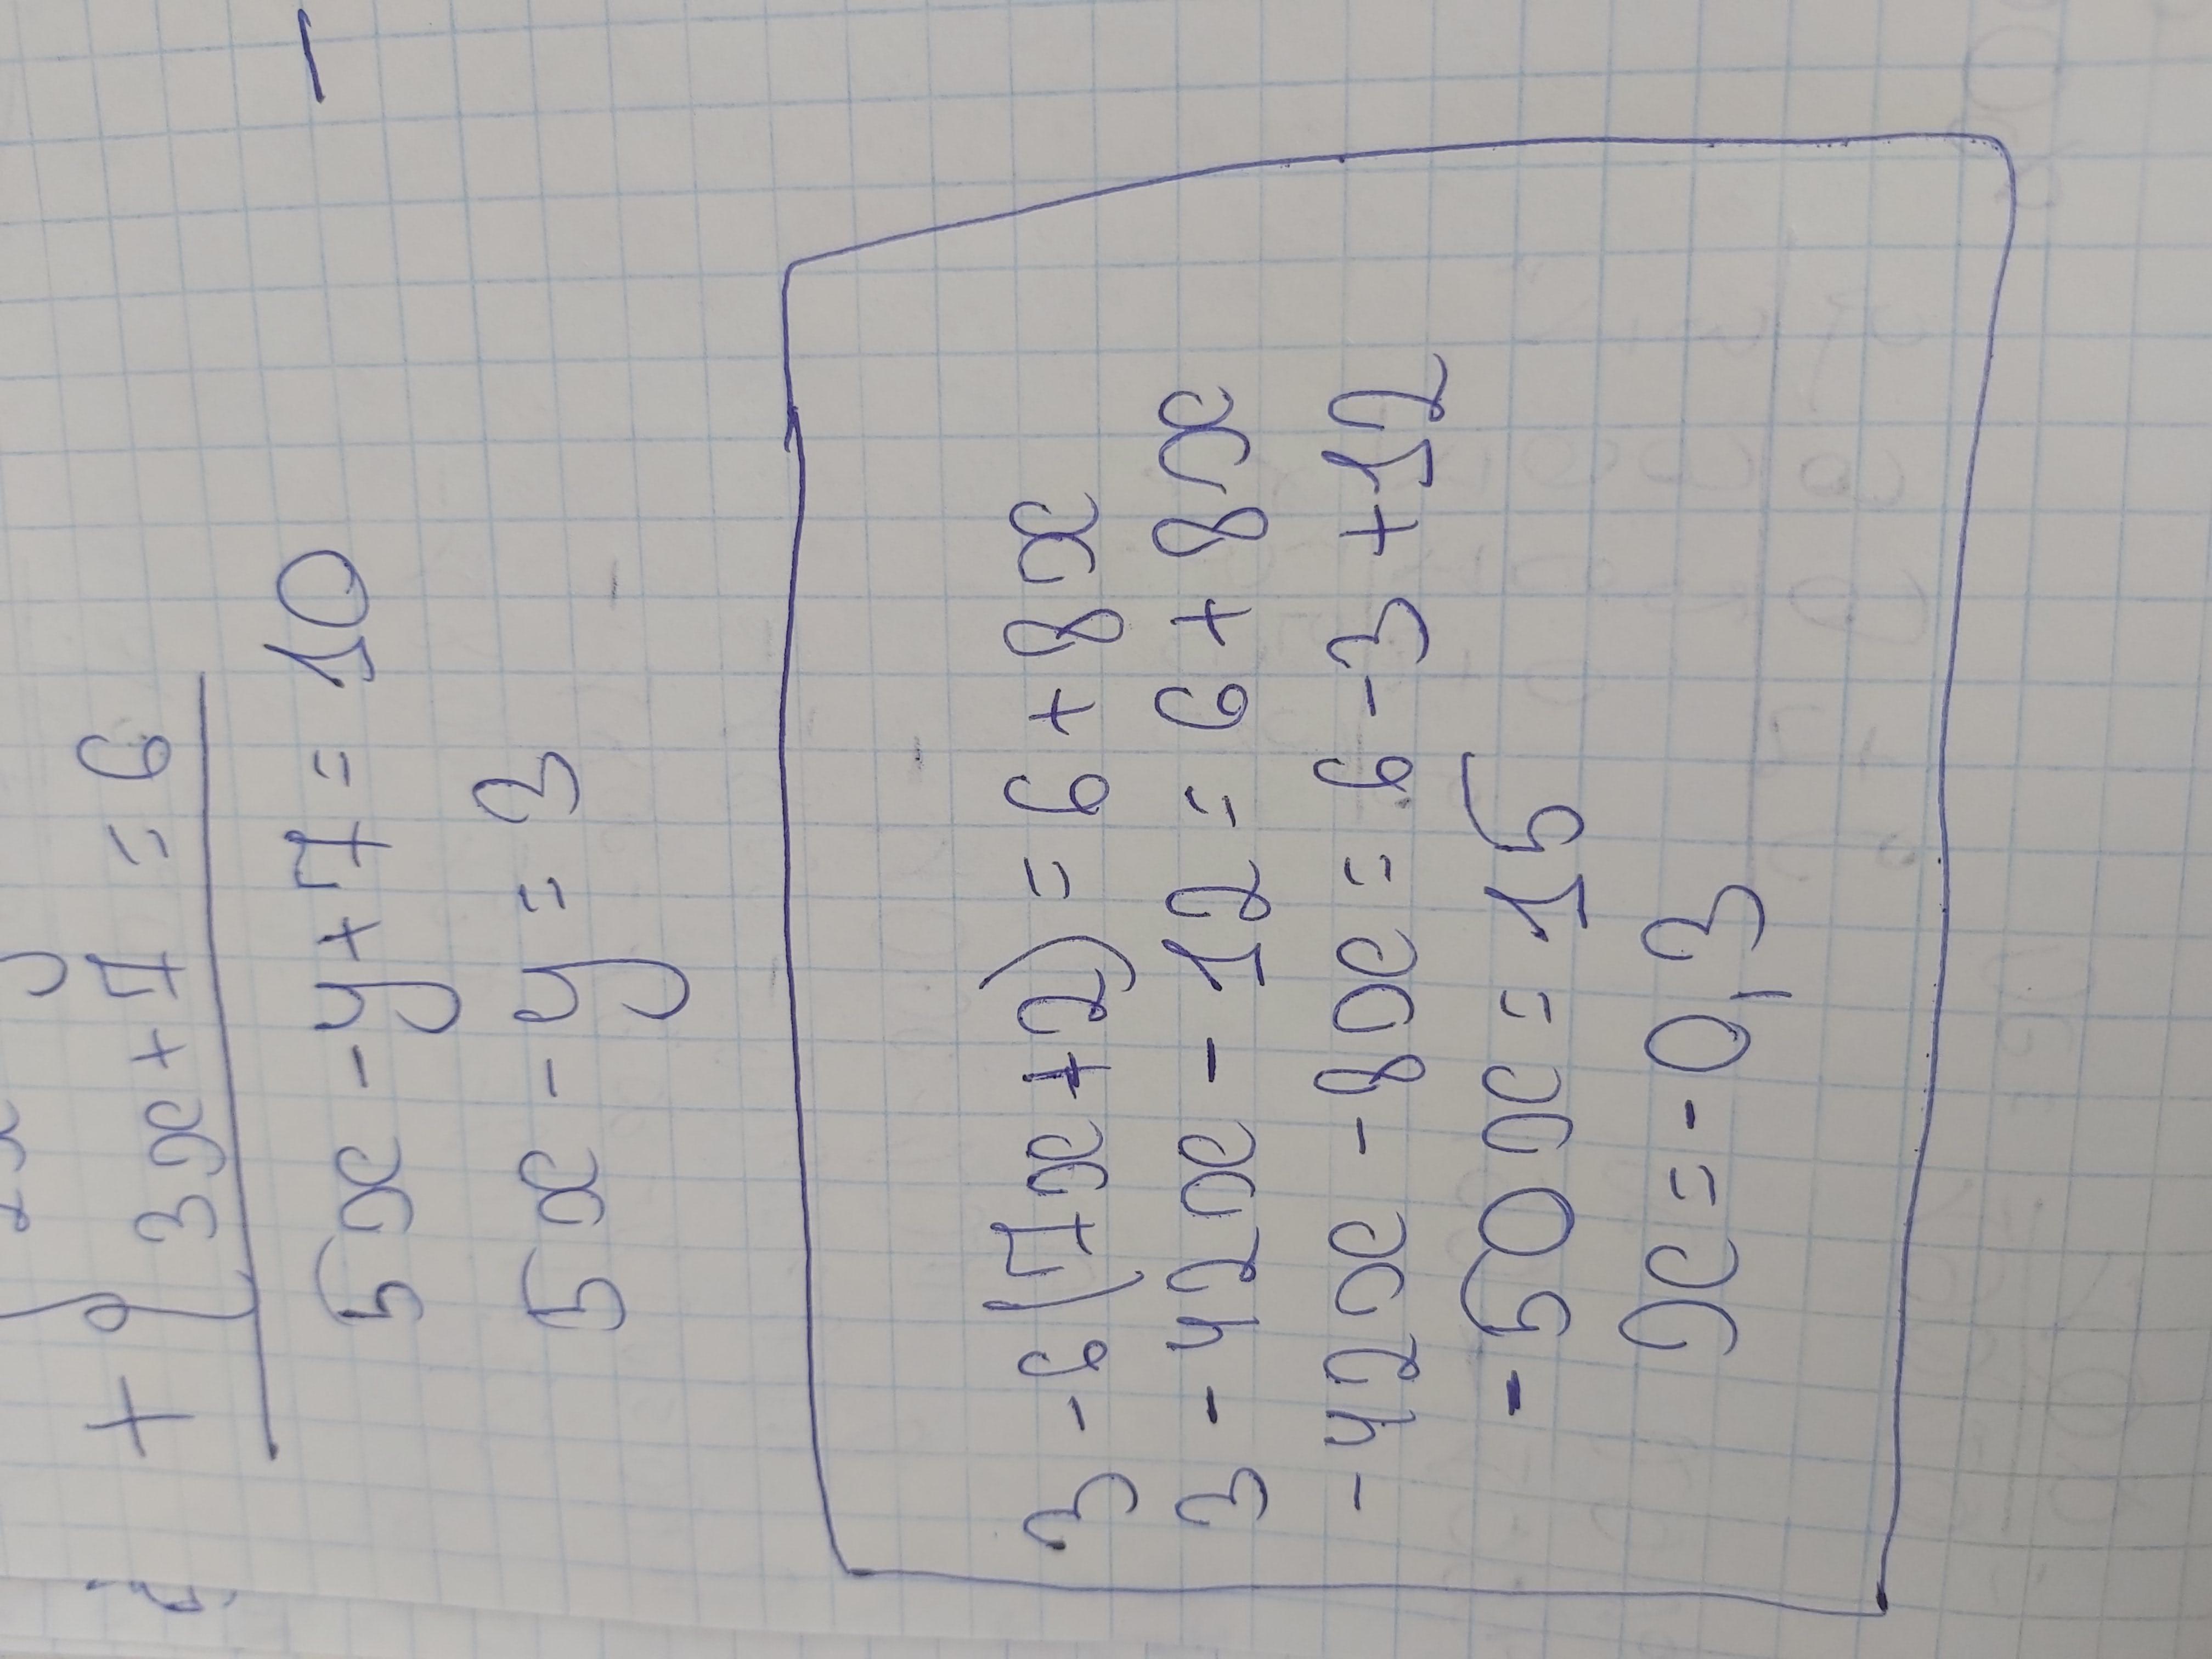 3x + 7 = 6
+ {
5x - y + 7 = 10
5x - y = 3
3 - 6(7x + 2) = 6 + 8x
3 - 42x - 12 = 6 + 8x
- 42x - 8x = 6 - 3 + 12
- 50x = 15
x = - 0,3